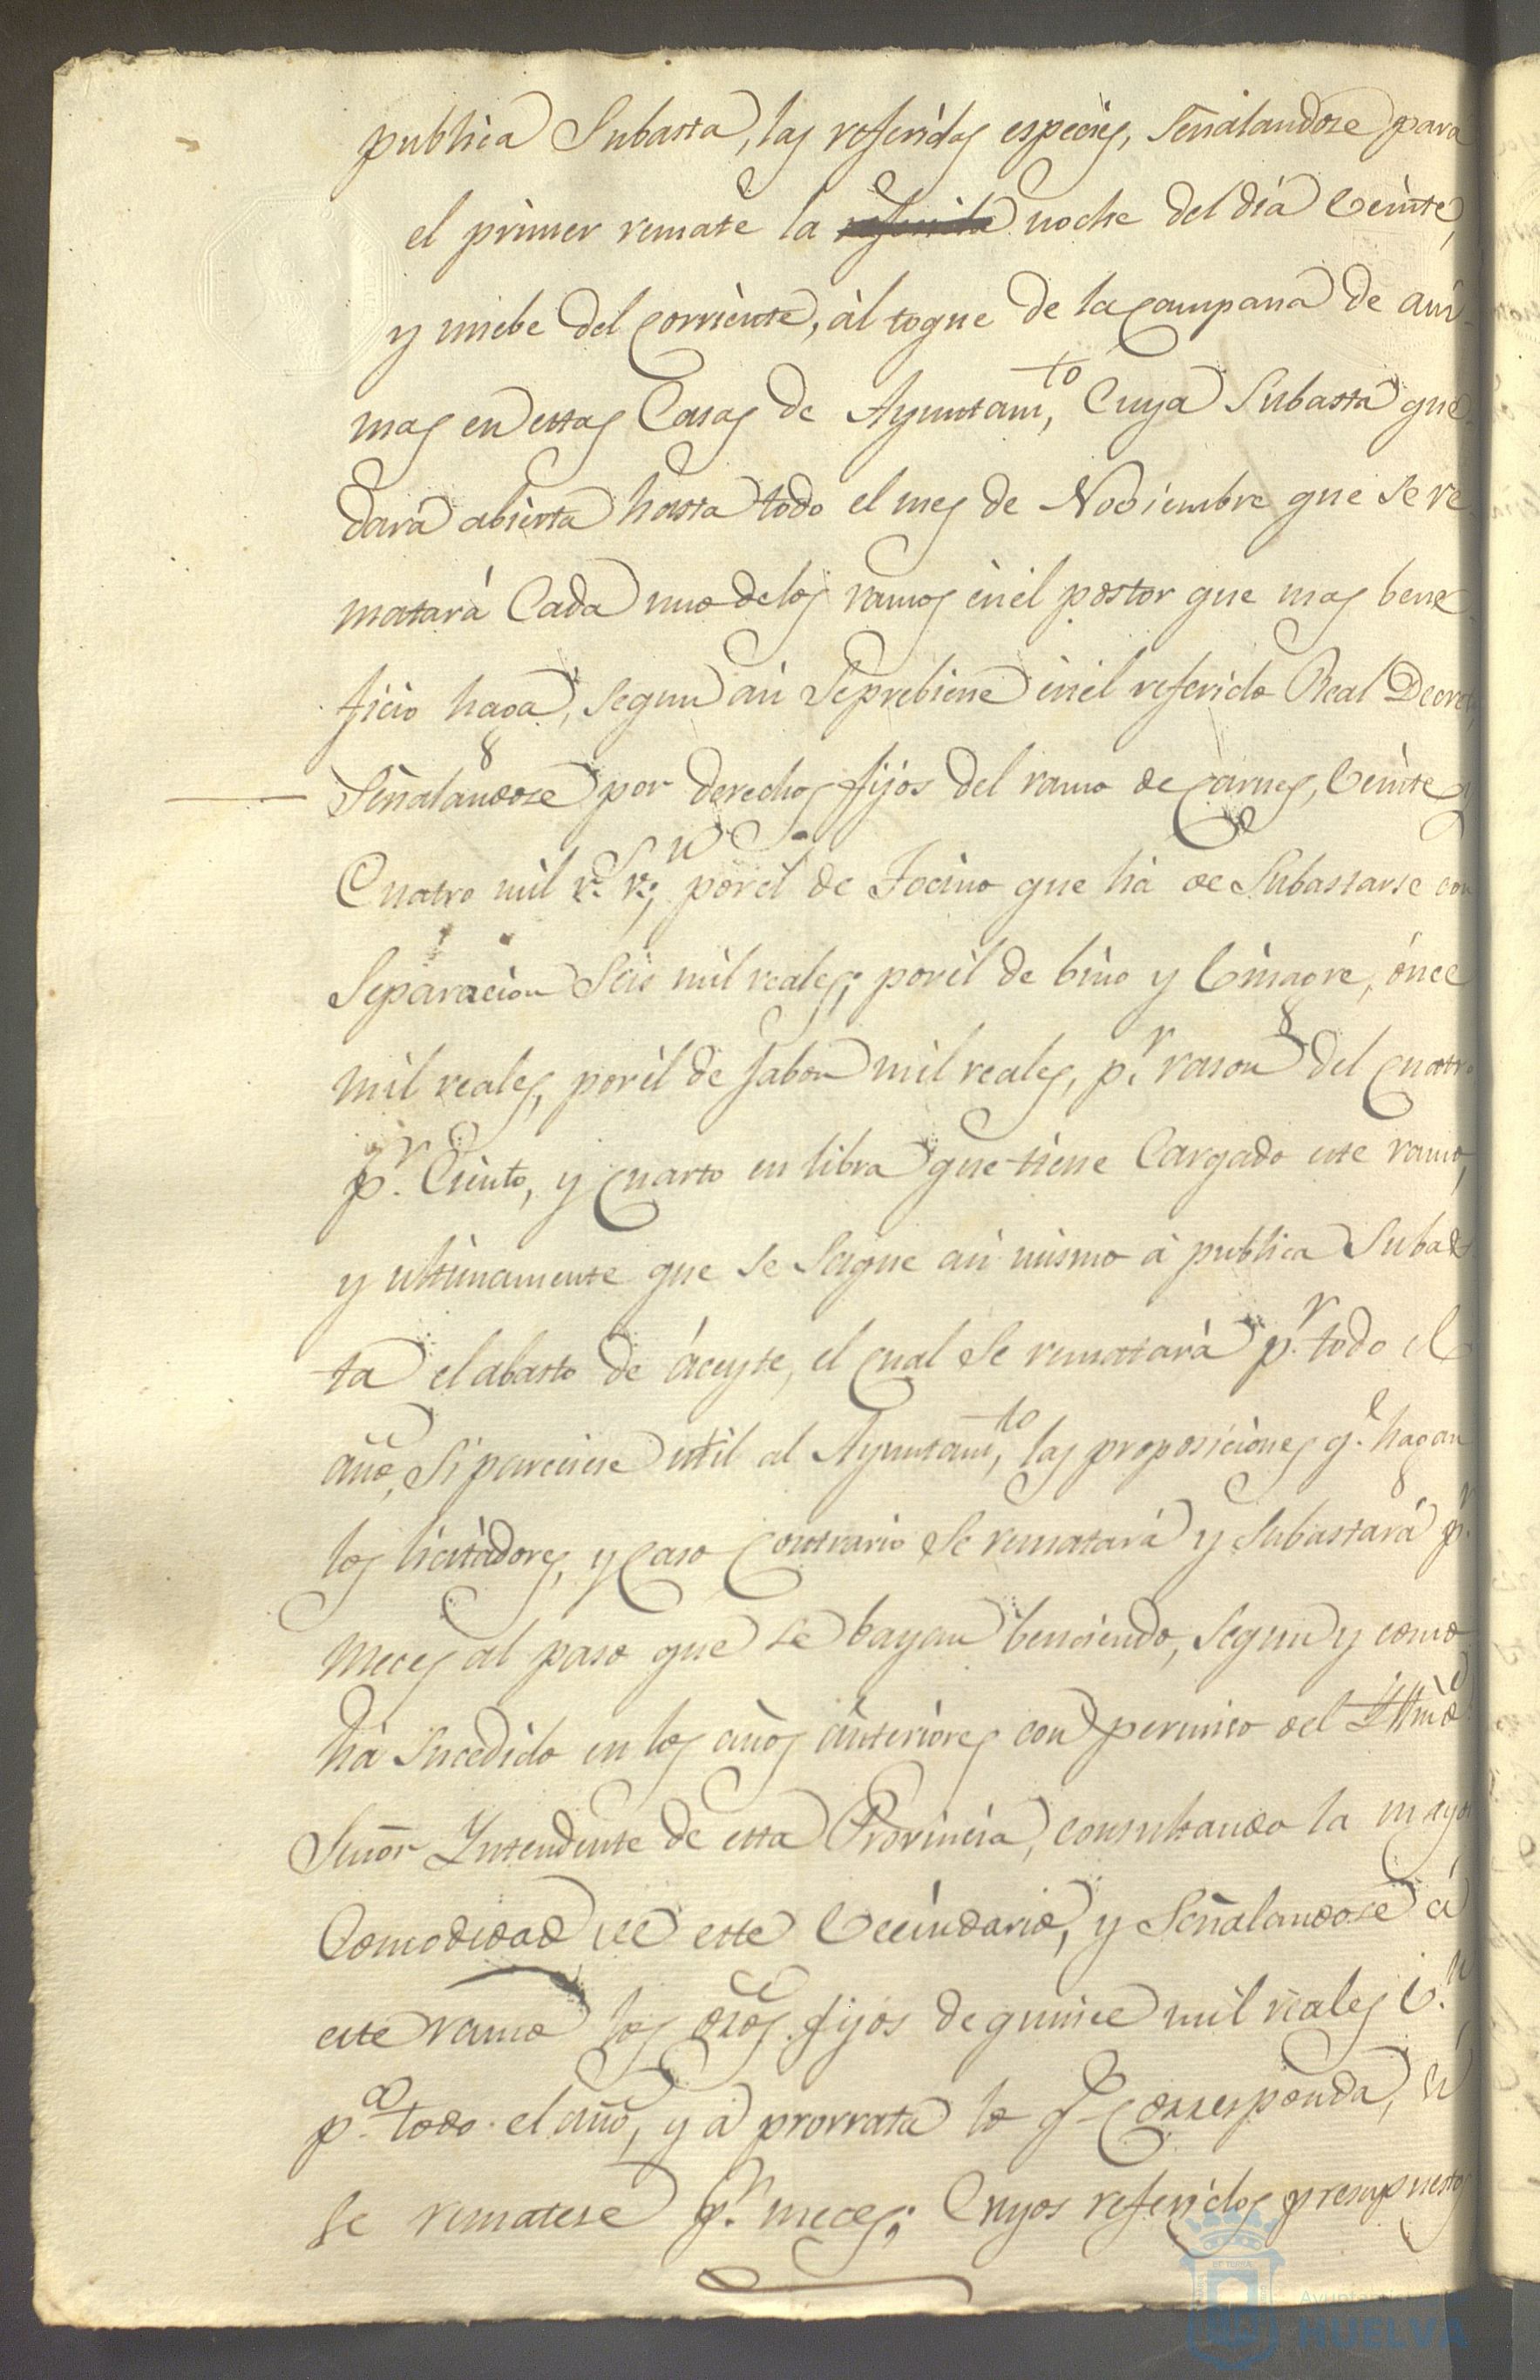 publica Subasta, las referidas especies, Señalandose para
el primer remate la referida noche del dia Veinte,
y nuebe del Corriente, àl toque de la Campana de ani-
mas en estas Casas de Ayuntam.to, Cuya Subasta que-
dará abierta hasta todo el mes de Noviembre que se re-
matará Cada uno de los ramos en èl postor que mas bene-
ficio haga, segun asi Se prebiene en èl referido Real Decreto,
Señalandose por derechos fijos del ramo de Carnes, Veinte y
Cuatro mil r.s v.n; por èl de Tocino que há de Subastarse con
Separacion Seis mil reales; por èl de bino y Vinagre, ónce
mil reales, por èl de Jabon mil reales, p.r rason del Cuatro
p.r Ciento, y Cuarto en libra que tiene Cargado este ramo,
y ultimamente que se Saque asi mismo à publica Subas-
ta el abasto de áceyte, el Cual Se rematará p.r todo el
año, Si pareciese util al Ayuntam.to, las proposiciones q.e hagan
los licitadores, y Caso Contrario Se rematará y Subastará p.r
meces al paso que se bayan benciendo, segun y como
há Sucedido en los años ánteriores con permiso del Yllmo
Señor Yntendente de esta Provincia, consultando la mayor
Comodidad de este Vecindario, y Señalandose á
este ramo los dros fijos de quince mil reales V.n
p.a todo el año, y à prorrata lo q.e Corresponda, si
se rematase p.r meces; Cuyos referidos presupuestos
Ayuntamiento de
HUELVA